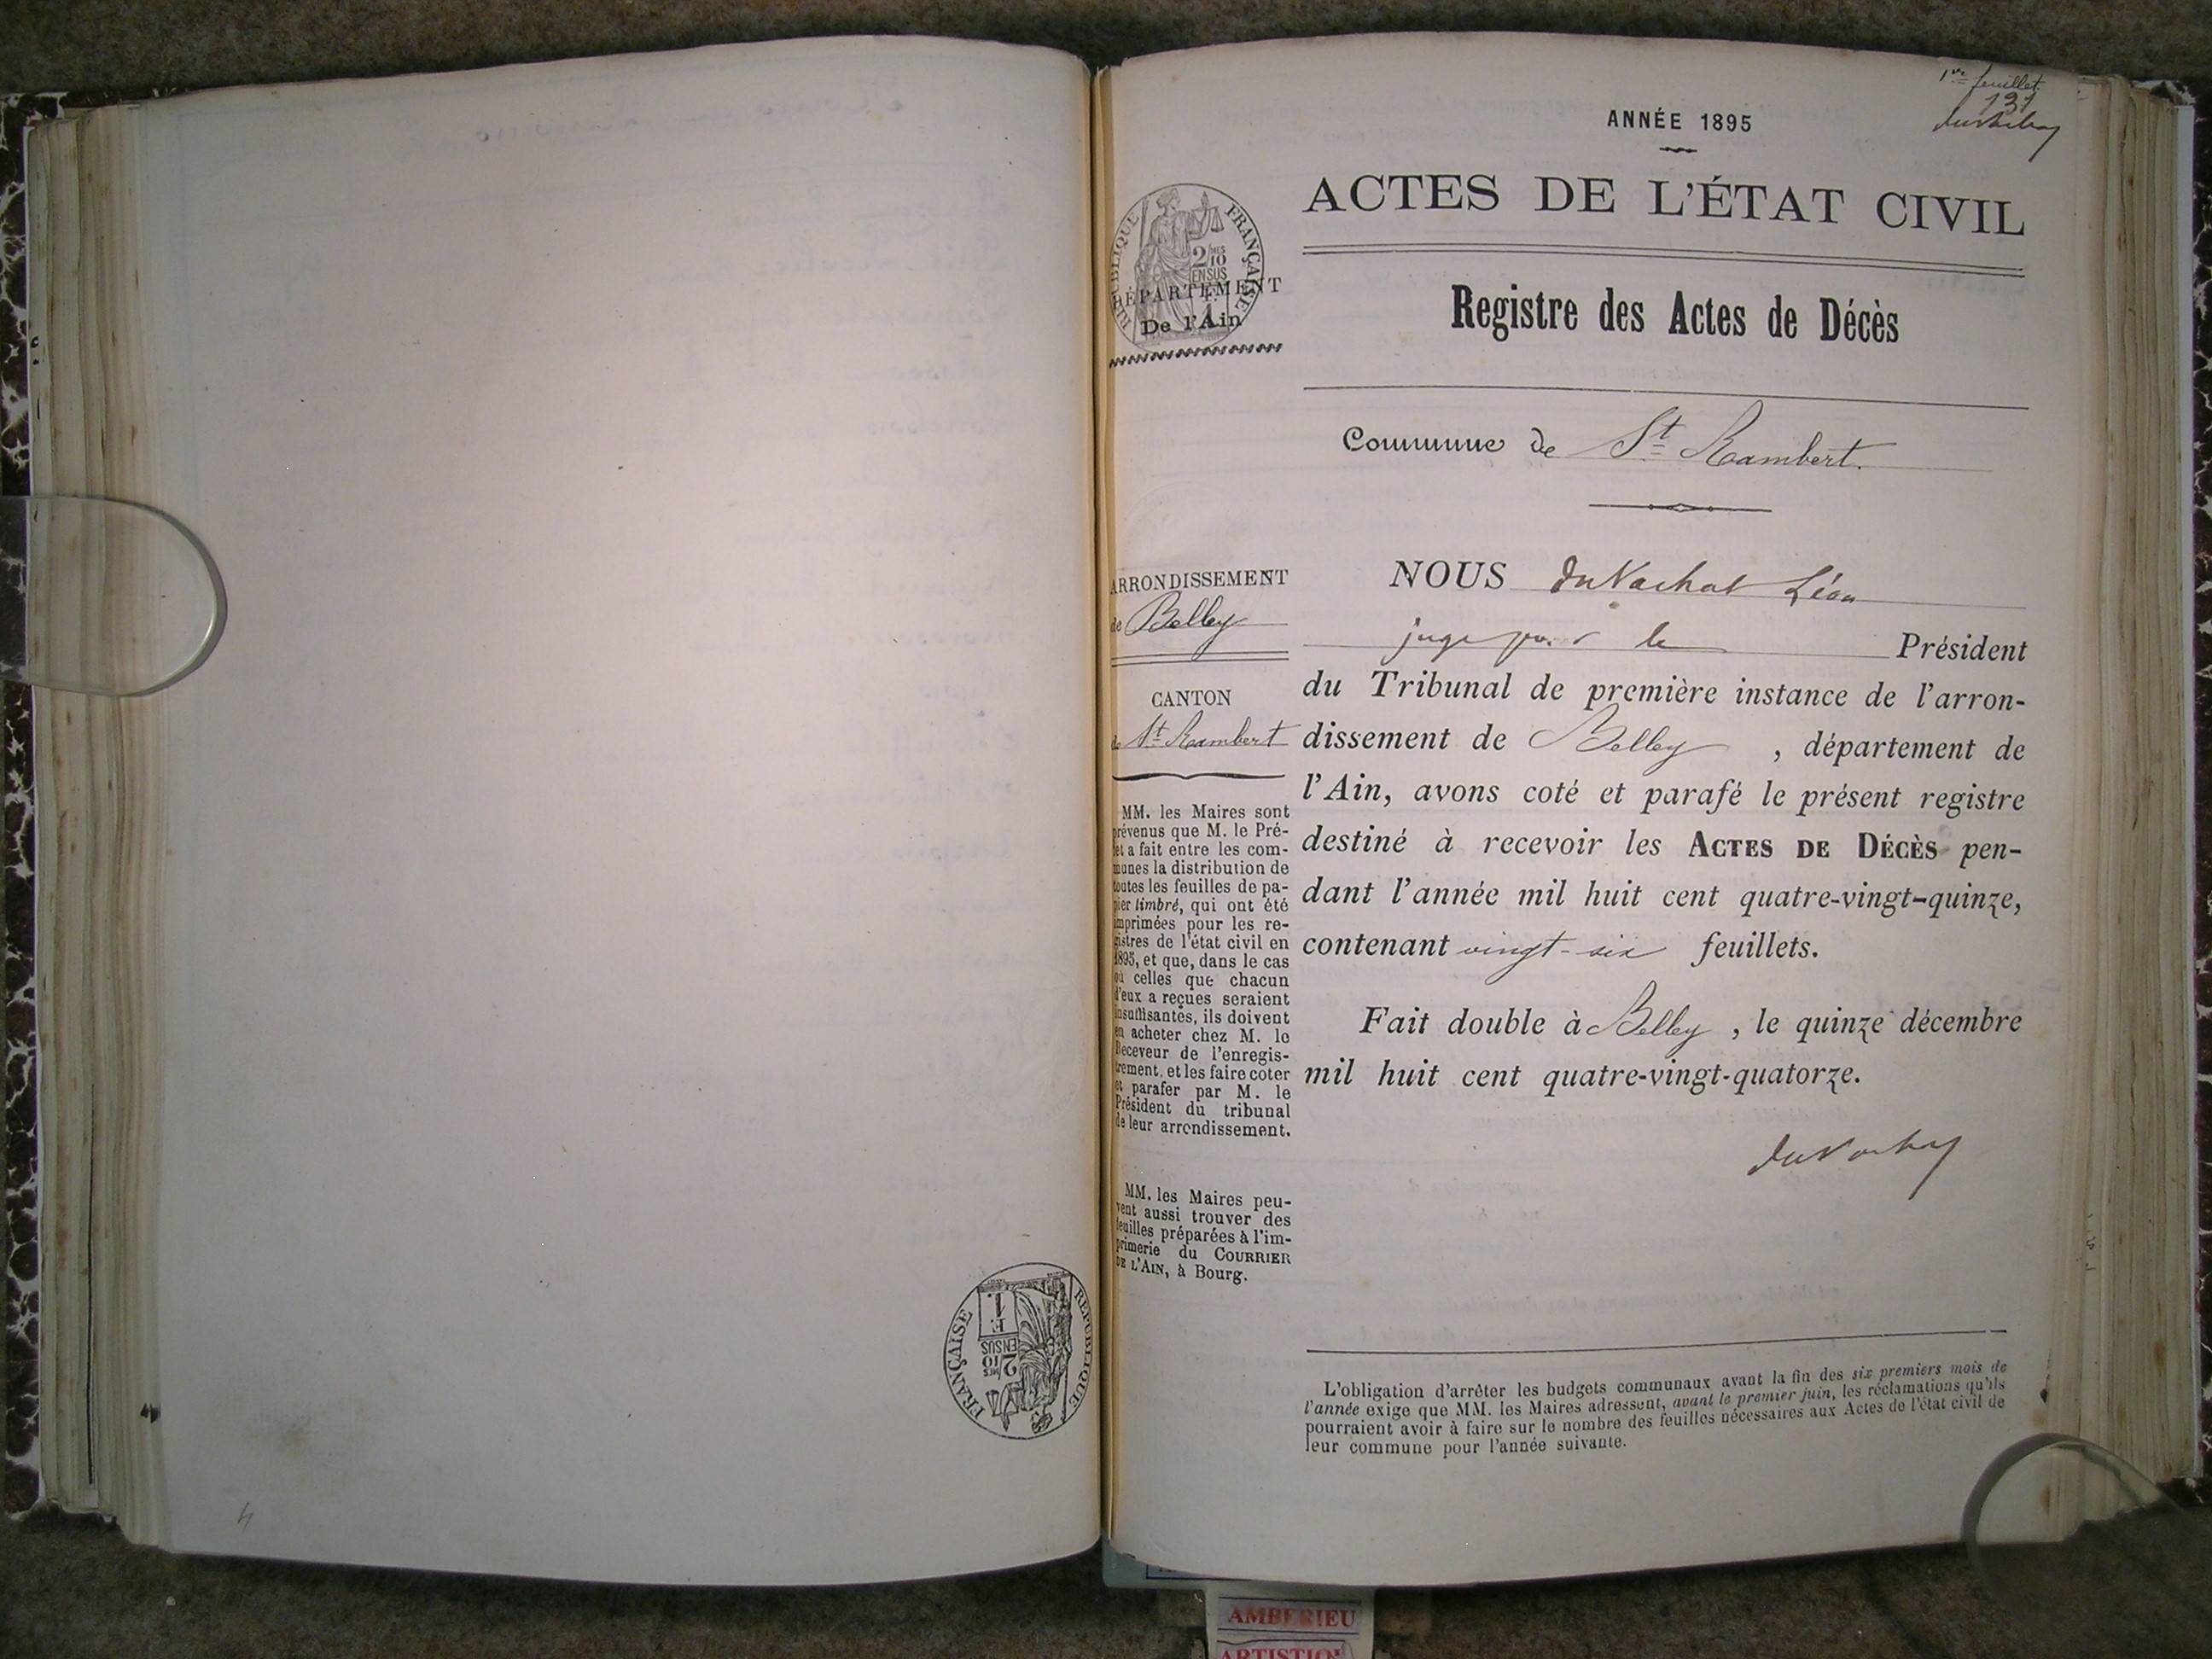 1re feuillet
131
duVachat
ANNÉE 1895
ACTES DE L'ÉTAT CIVIL
Registre des Actes de Décès
Commune de St Rambert.
RÉPUBLIQUE FRANÇAISE
2/10 MES
EN SUS
DÉPARTEMENT
De l'Ain
ARRONDISSEMENT
de Belley
CANTON
de St Rambert
MM. les Maires sont
prévenus que M. le Pré-
fet a fait entre les com-
munes la distribution de
toutes les feuilles de pa-
pier timbré, qui ont été
imprimées pour les re-
gistres de l'état civil en
1895, et que, dans le cas
où celles que chacun
d'eux a reçues seraient
insuffisantes, ils doivent
en acheter chez M. le
Receveur de l'enregis-
trement, et les faire coter
et parafer par M. le
Président du tribunal
de leur arrondissement.
MM. les Maires peu-
vent aussi trouver des
feuilles préparées à l'im-
primerie du COURRIER
DE L'AIN, à Bourg.
NOUS duVachat Léon
juge pour le Président
du Tribunal de première instance de l'arron-
dissement de Belley , département de
l'Ain, avons coté et parafé le présent registre
destiné à recevoir les ACTES DE DÉCÈS pen-
dant l'année mil huit cent quatre-vingt-quinze,
contenant vingt-six feuillets.
Fait double à Belley , le quinze décembre
mil huit cent quatre-vingt-quatorze.
duVachat
L'obligation d'arrêter les budgets communaux avant la fin des six premiers mois de
l'année exige que MM. les Maires adressent, avant le premier juin, les réclamations qu'ils
pourraient avoir à faire sur le nombre des feuilles nécessaires aux Actes de l'état civil de
leur commune pour l'année suivante.
RÉPUBLIQUE FRANÇAISE
2/10 MES
EN SUS
1. F.
4
AMBERIEU
ARTISTIQ